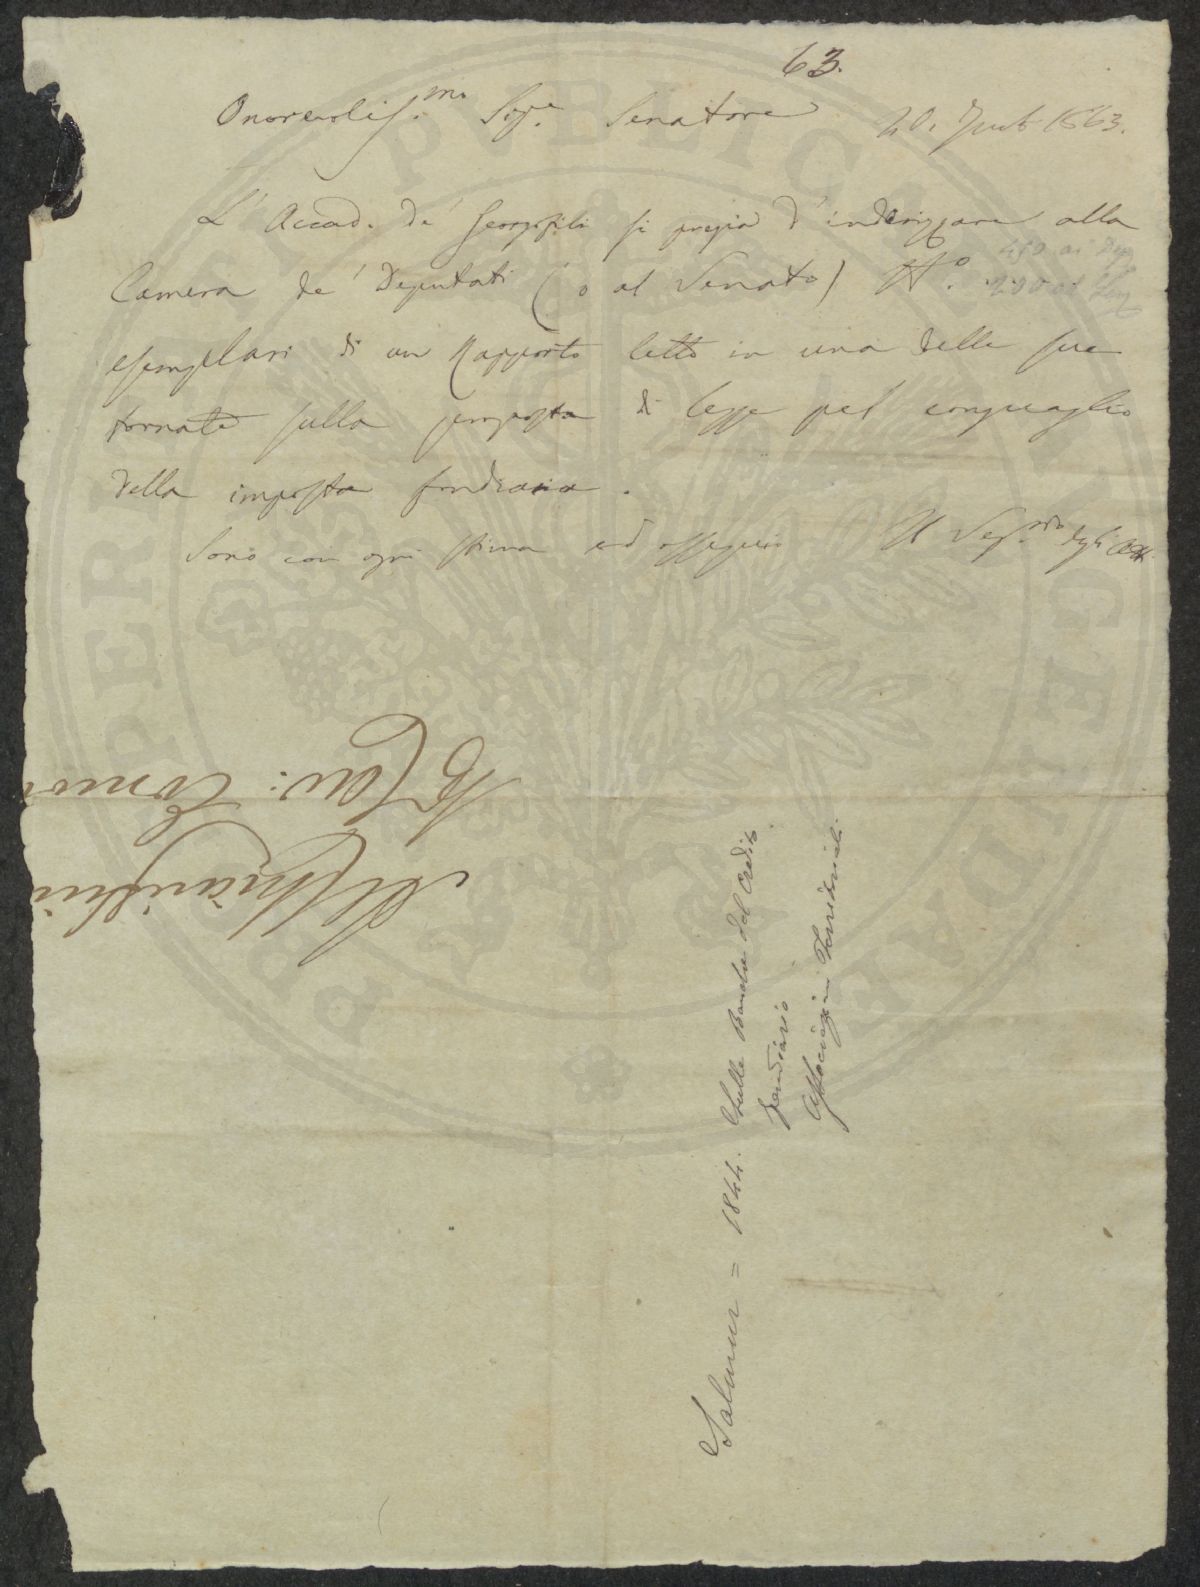 63.
Onorevoliss.mo Sigr. Senatore
20. 1863.
L' Accad. de' Georgofili si pregia d' indirizzare alla
450 ai Dep
Camera de' Deputati (o al Senato) N.o 200 al Sen
esemplari di un Rapporto letto in una delle sue
tornate sulla proposta di legge pel conguaglio
della imposta fondiaria.
Sono con ogni stima ed ossequio Il Seg.rio degli Atti
Al Chiarissimo
Sig Cav:
Salmour = 1844. Sulle Banche del Credito
fondiario
Associazioni Territoriali.
PERPETUA
PVBLICAE
PROSPERITATI